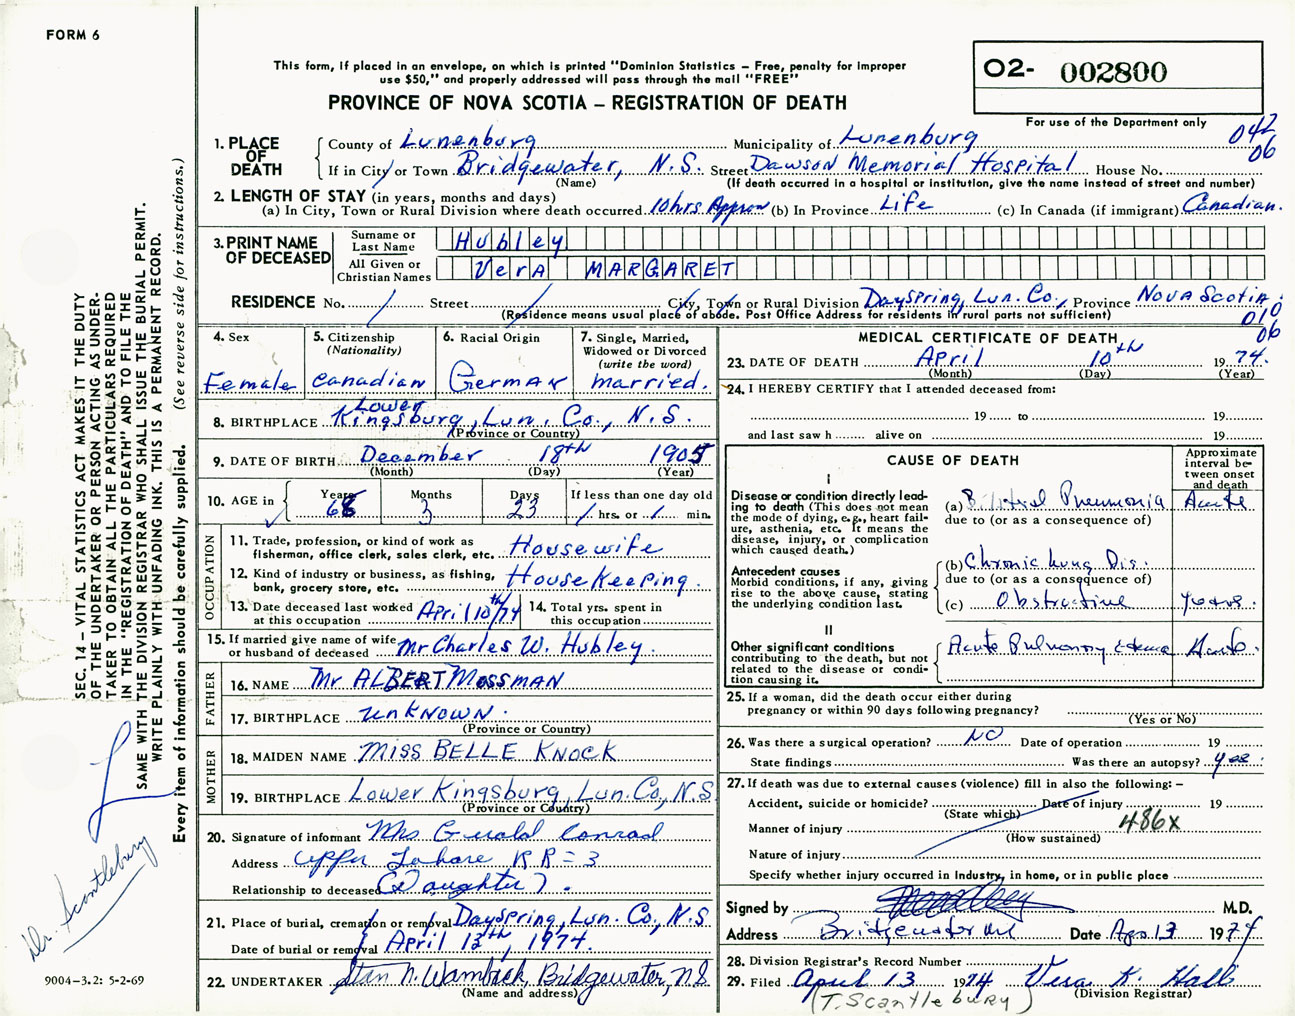 FORM 6
This form, if placed in an envelope, on which is printed "Dominion Statistics – Free, penalty for improper
use $50," and properly addressed will pass through the mail "FREE"
PROVINCE OF NOVA SCOTIA – REGISTRATION OF DEATH
O2- 002800
For use of the Department only
042
06
1. PLACE OF DEATH
County of Lunenburg Municipality of Lunenburg
If in City or Town Bridgewater, N.S. Street Dawson Memorial Hospital House No.
(Name) (If death occurred in a hospital or institution, give the name instead of street and number)
2. LENGTH OF STAY (in years, months and days)
(a) In City, Town or Rural Division where death occurred 10 hrs Approx (b) In Province Life (c) In Canada (if immigrant) Canadian.
3. PRINT NAME OF DECEASED
Surname or Last Name Hubley
All Given or Christian Names Vera MARGARET
RESIDENCE No. / Street / City, Town or Rural Division Dayspring, Lun. Co., Province Nova Scotia.
(Residence means usual place of abode. Post Office Address for residents in rural parts not sufficient)
010
06
4. Sex Female
5. Citizenship (Nationality) Canadian
6. Racial Origin German
7. Single, Married, Widowed or Divorced (write the word) Married.
8. BIRTHPLACE Lower Kingsburg, Lun. Co., N.S.
(Province or Country)
9. DATE OF BIRTH December 18th 1905
(Month) (Day) (Year)
10. AGE in Years 68 Months 3 Days 23 If less than one day old / hrs. or / min.
OCCUPATION
11. Trade, profession, or kind of work as fisherman, office clerk, sales clerk, etc. Housewife
12. Kind of industry or business, as fishing, bank, grocery store, etc. Housekeeping.
13. Date deceased last worked at this occupation April 10th/74
14. Total yrs. spent in this occupation
15. If married give name of wife or husband of deceased Mr Charles W. Hubley.
FATHER
16. NAME Mr ALBERT MOSSMAN
17. BIRTHPLACE unknown.
(Province or Country)
MOTHER
18. MAIDEN NAME Miss BELLE KNOCK
19. BIRTHPLACE Lower Kingsburg, Lun. Co., N.S
(Province or Country)
20. Signature of informant Mrs Gerald Conrad
Address Upper Lahave RR=3
Relationship to deceased (Daughter).
21. Place of burial, cremation or removal Dayspring, Lun. Co., N.S
Date of burial or removal April 13th, 1974.
22. UNDERTAKER Stan N. Wamback, Bridgewater, N.S.
(Name and address)
MEDICAL CERTIFICATE OF DEATH
23. DATE OF DEATH April 10th 1974.
(Month) (Day) (Year)
24. I HEREBY CERTIFY that I attended deceased from:
19 to 19
and last saw h alive on 19
CAUSE OF DEATH
Approximate interval between onset and death
I
Disease or condition directly leading to death (This does not mean the mode of dying, e.g., heart failure, asthenia, etc. It means the disease, injury, or complication which caused death.)
(a) Bilateral Pneumonia Acute
due to (or as a consequence of)
Antecedent causes
Morbid conditions, if any, giving rise to the above cause, stating the underlying condition last.
(b) Chronic Lung Dis.
due to (or as a consequence of)
(c) Obstructive years.
II
Other significant conditions contributing to the death, but not related to the disease or condition causing it.
Acute Pulmonary edema Acute.
25. If a woman, did the death occur either during pregnancy or within 90 days following pregnancy?
(Yes or No)
26. Was there a surgical operation? NO Date of operation 19
State findings Was there an autopsy? yes.
27. If death was due to external causes (violence) fill in also the following: –
Accident, suicide or homicide? Date of injury 19
(State which)
Manner of injury 486x
(How sustained)
Nature of injury
Specify whether injury occurred in Industry, in home, or in public place
Signed by M.D.
Address Bridgewater Date Apr 13 1974
28. Division Registrar's Record Number
29. Filed April 13 1974 Vera K. Hall
(T. SCANTLEBURY) (Division Registrar)
SEC. 14 – VITAL STATISTICS ACT MAKES IT THE DUTY
OF THE UNDERTAKER OR PERSON ACTING AS UNDER-
TAKER TO OBTAIN ALL THE PARTICULARS REQUIRED
IN THE "REGISTRATION OF DEATH" AND TO FILE THE
SAME WITH THE DIVISION REGISTRAR WHO SHALL ISSUE THE BURIAL PERMIT.
WRITE PLAINLY WITH UNFADING INK. THIS IS A PERMANENT RECORD.
Every item of information should be carefully supplied. (See reverse side for instructions.)
Dr. Scantlebury
9004–3.2: 5-2-69